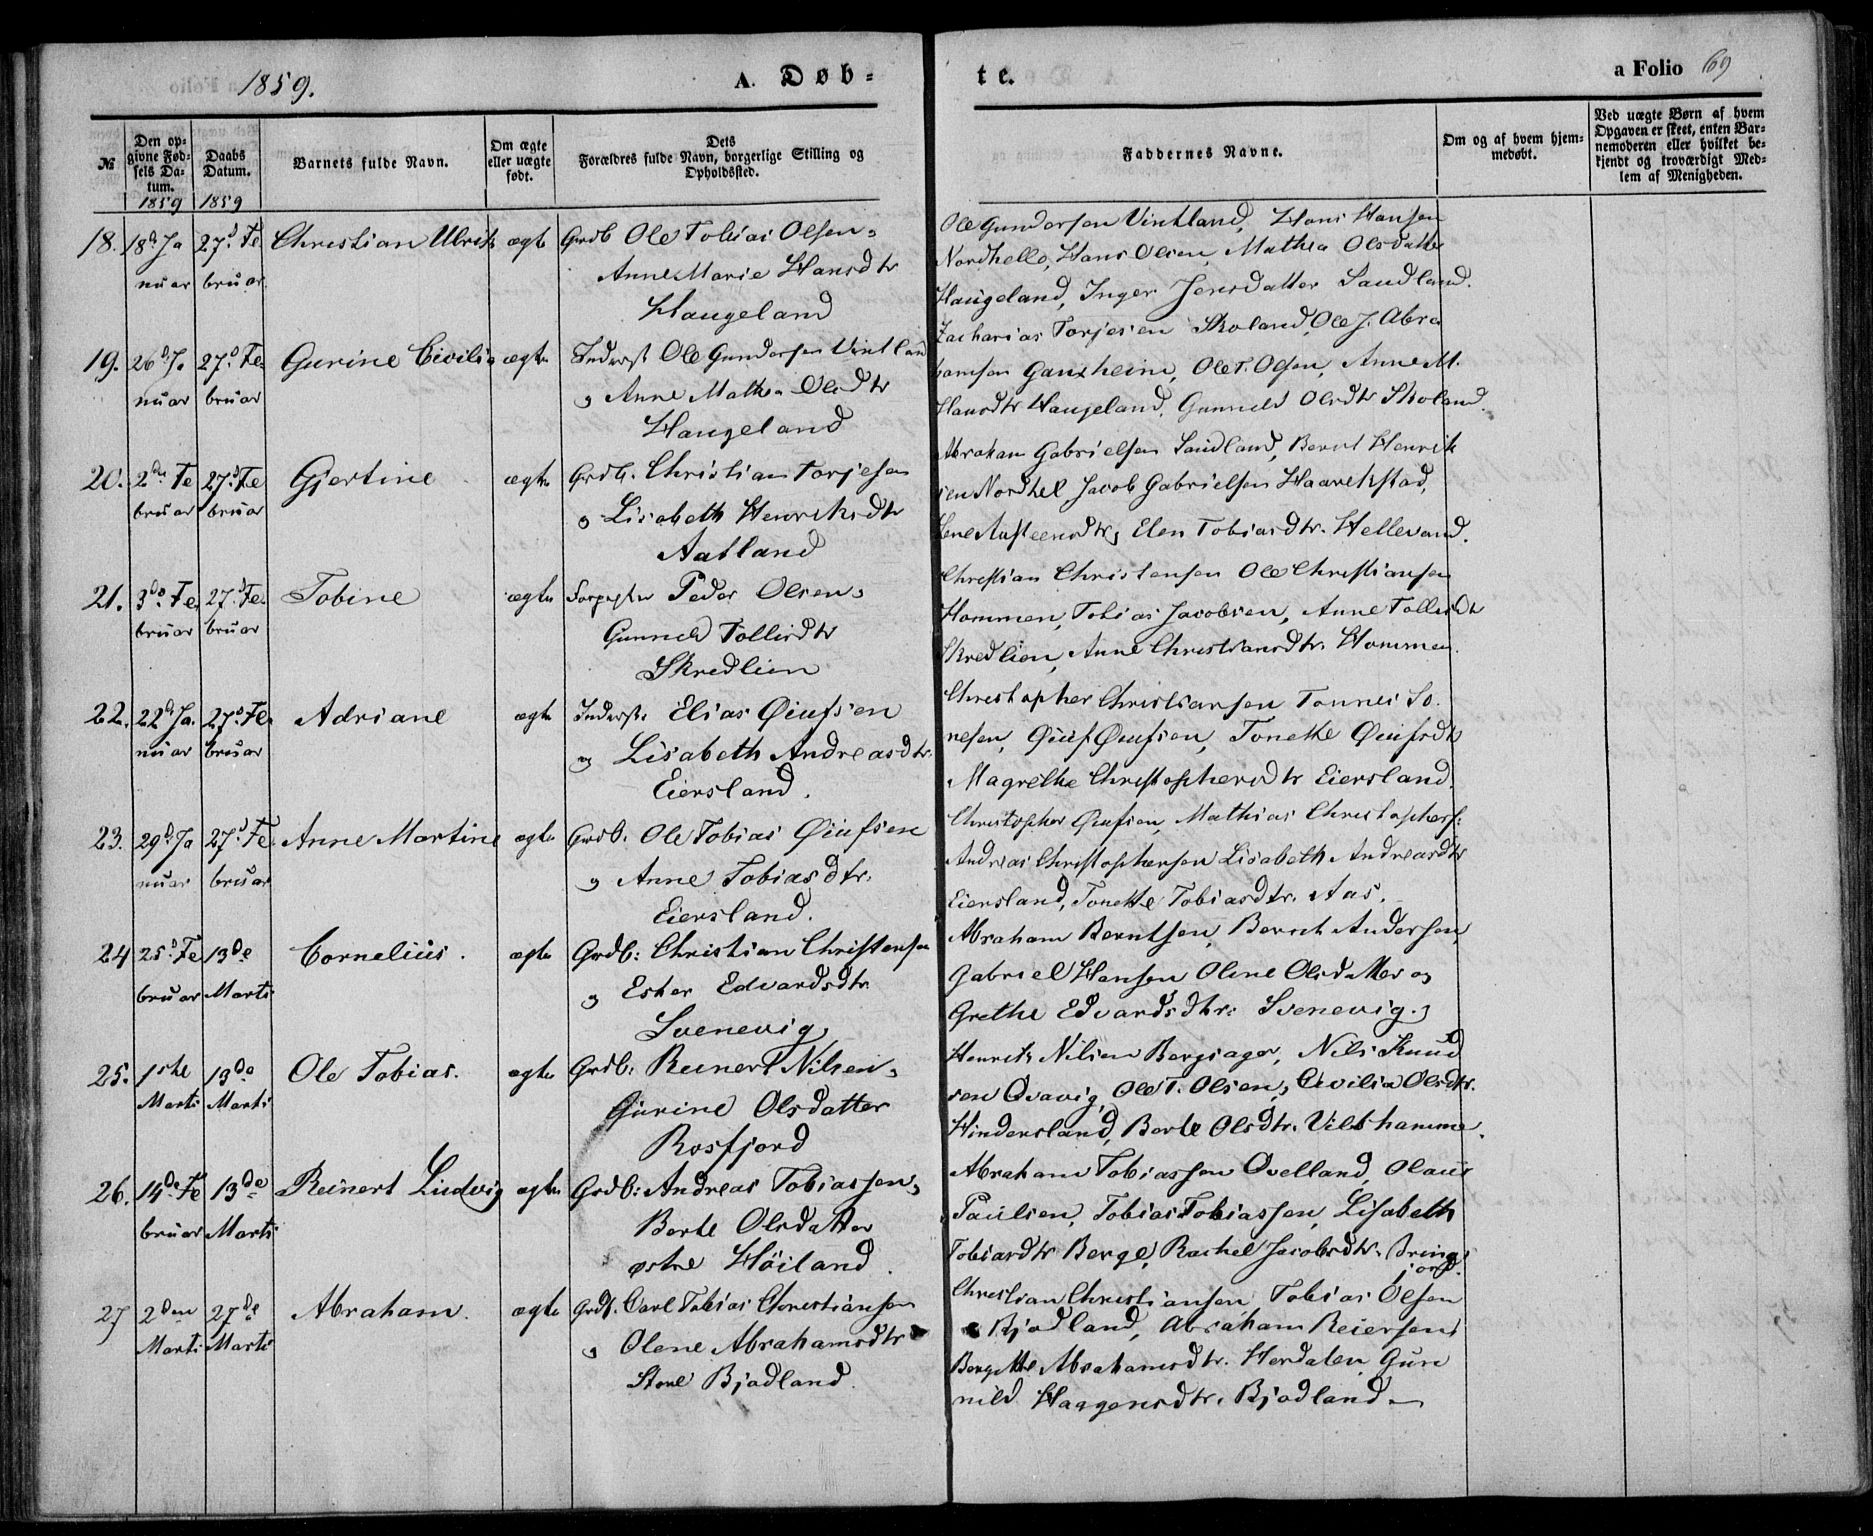 1859. A. Døb-
te. a Folio 69
No
Den op-
givne Fød-
sels Da-
tum.
1859
Daabs
Datum.
1859
Barnets fulde Navn.
Om ægte
eller uægte
født.
Dets
Forældres fulde Navn, borgerlige Stilling og
Opholdssted.
Faddernes Navne.
Om og af hvem hjem-
medøbt.
Ved uægte Børn af hvem
Opgaven er skeet, enten Bar-
nemoderen eller hvilket be-
kjendt og troværdigt Med-
lem af Menigheden.
18. 18d Ja 27d Fe Christian Ulrik ægte Grdb Ole Tobias Olsen
nuar bruar. Anne Marie Hansdtr
Haugeland
Ole Gundersen Vintland, Hans Hansen
Nordhelle, Hans Olsen, Mathea Olsdatter
Haugeland, Inger Jensdatter Sandland.
19. 26d Ja 27d Fe Gurine Cicilia ægte Inderst Ole Gundersen Vintland
nuar bruar og Anne Mathea Olsdtr
Haugeland
Zacharias Torjesen Skoland, Ole J. Abra
hamsen Ganxheim, Ole T. Olsen, Anne M.
Hansdtr Haugeland, Gunnild Olsdtr Skoland.
20. 2den Fe 27d Fe Gjertine ægte Grdb. Christian Torjesen
bruar bruar og Lisabeth Henriksdtr
Aatland
Abraham Gabrielsen Sandland, Bernt Henrik
sen Nordhel, Jacob Gabrielsen Haarikstad,
Lene Austeensdtr, Elen Tobiasdtr. Hellevand.
21. 3de Fe 27d Fe Tobine ægte Peder Olsen
bruar bruar Gunnild Tollisdtr
Skredlien
Christian Christensen Ole Christiansen
Hommen, Tobias Jacobsen, Anne Tollisdtr
Skredlien, Anne Christiansdtr. Hommen.
22. 22d Ja. 27d Fe. Adriane ægte Inderst. Elias Øiufsen
nuar bruar og Lisabeth Andreasdtr.
Eiersland.
Christopher Christiansen Tonnes So
nesen, Øiuf Øiufsen, Tonette Øiufsdtr
Magrethe Christophersdtr Eiersland.
23. 29d Ja 27d Fe. Anne Martine ægte Grdb. Ole Tobias Øiufsen
nuar bruar og Anne Tobiasdtr.
Eiersland.
Christopher Øiufsen, Mathias Christophers:
Andreas Christophersen Lisabeth Andreasdtr
Eiersland, Tonette Tobiasdtr. Aas.
24 25d Fe 13de Cornelius. ægte Grdb: Christian Christensen
bruar Marti og Ester Edvardsdtr
Svenevig
Abraham Berntsen, Berent Andersen,
Gabriel Hansen Oline Olsdatter og
Grethe Edvardsdtr: Svenevig.
25. 1ste 13de Ole Tobias. ægte Grdb. Reinert Nilsen
Marti Marti Gurine Olsdatter
Rosfjord
Henrik Nilsen Bergsager, Nils Knud
sen Qvavig, Ole T. Olsen, Cicilia Olsdtr.
Hindersland, Berte Olsdtr. Vibshamme.
26. 14de Fe 13de Reinert Ludvig ægte Grdb: Andreas Tobiassen
bruar Marti Berte Olsdatter
østre Høiland.
Abraham Tobiassen Qvelland, Olaus
Paulsen, Tobias Tobiassen, Lisabeth
Tobiasdtr Berge, Rachel Jacobsdtr. Brings
jord.
27 2den 27de Abraham. ægte Grdb. Carl Tobias Christiansen
Marti Marti og Olene Abrahamsdtr
Store Bjodland.
Christian Christiansen, Tobias Olsen
Bjodland, Abraham Reiersen,
Bergitte Abrahamsdtr. Herdalen Gun
nild Haagensdtr. Bjodland